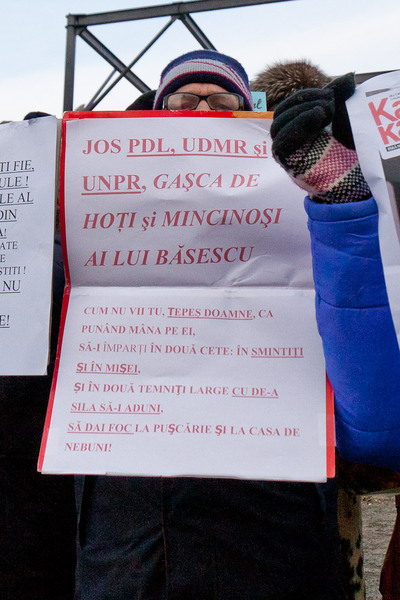 TI FIE,
ULE !
LE AL
DIN
A!
ATE
E
STITI !
NU
E!
JOS PDL, UDMR și
UNPR, GAȘCA DE
HOȚI și MINCINOȘI
AI LUI BĂSESCU
CUM NU VII TU, ȚEPES DOAMNE, CA
PUNÂND MÂNA PE EI,
SĂ-I ÎMPARȚI ÎN DOUĂ CETE: ÎN SMINTIȚI
ȘI ÎN MIȘEI,
ȘI ÎN DOUĂ TEMNIȚI LARGE CU DE-A
SILA SĂ-I ADUNI,
SĂ DAI FOC LA PUȘCĂRIE ȘI LA CASA DE
NEBUNI!
Ka
Ka